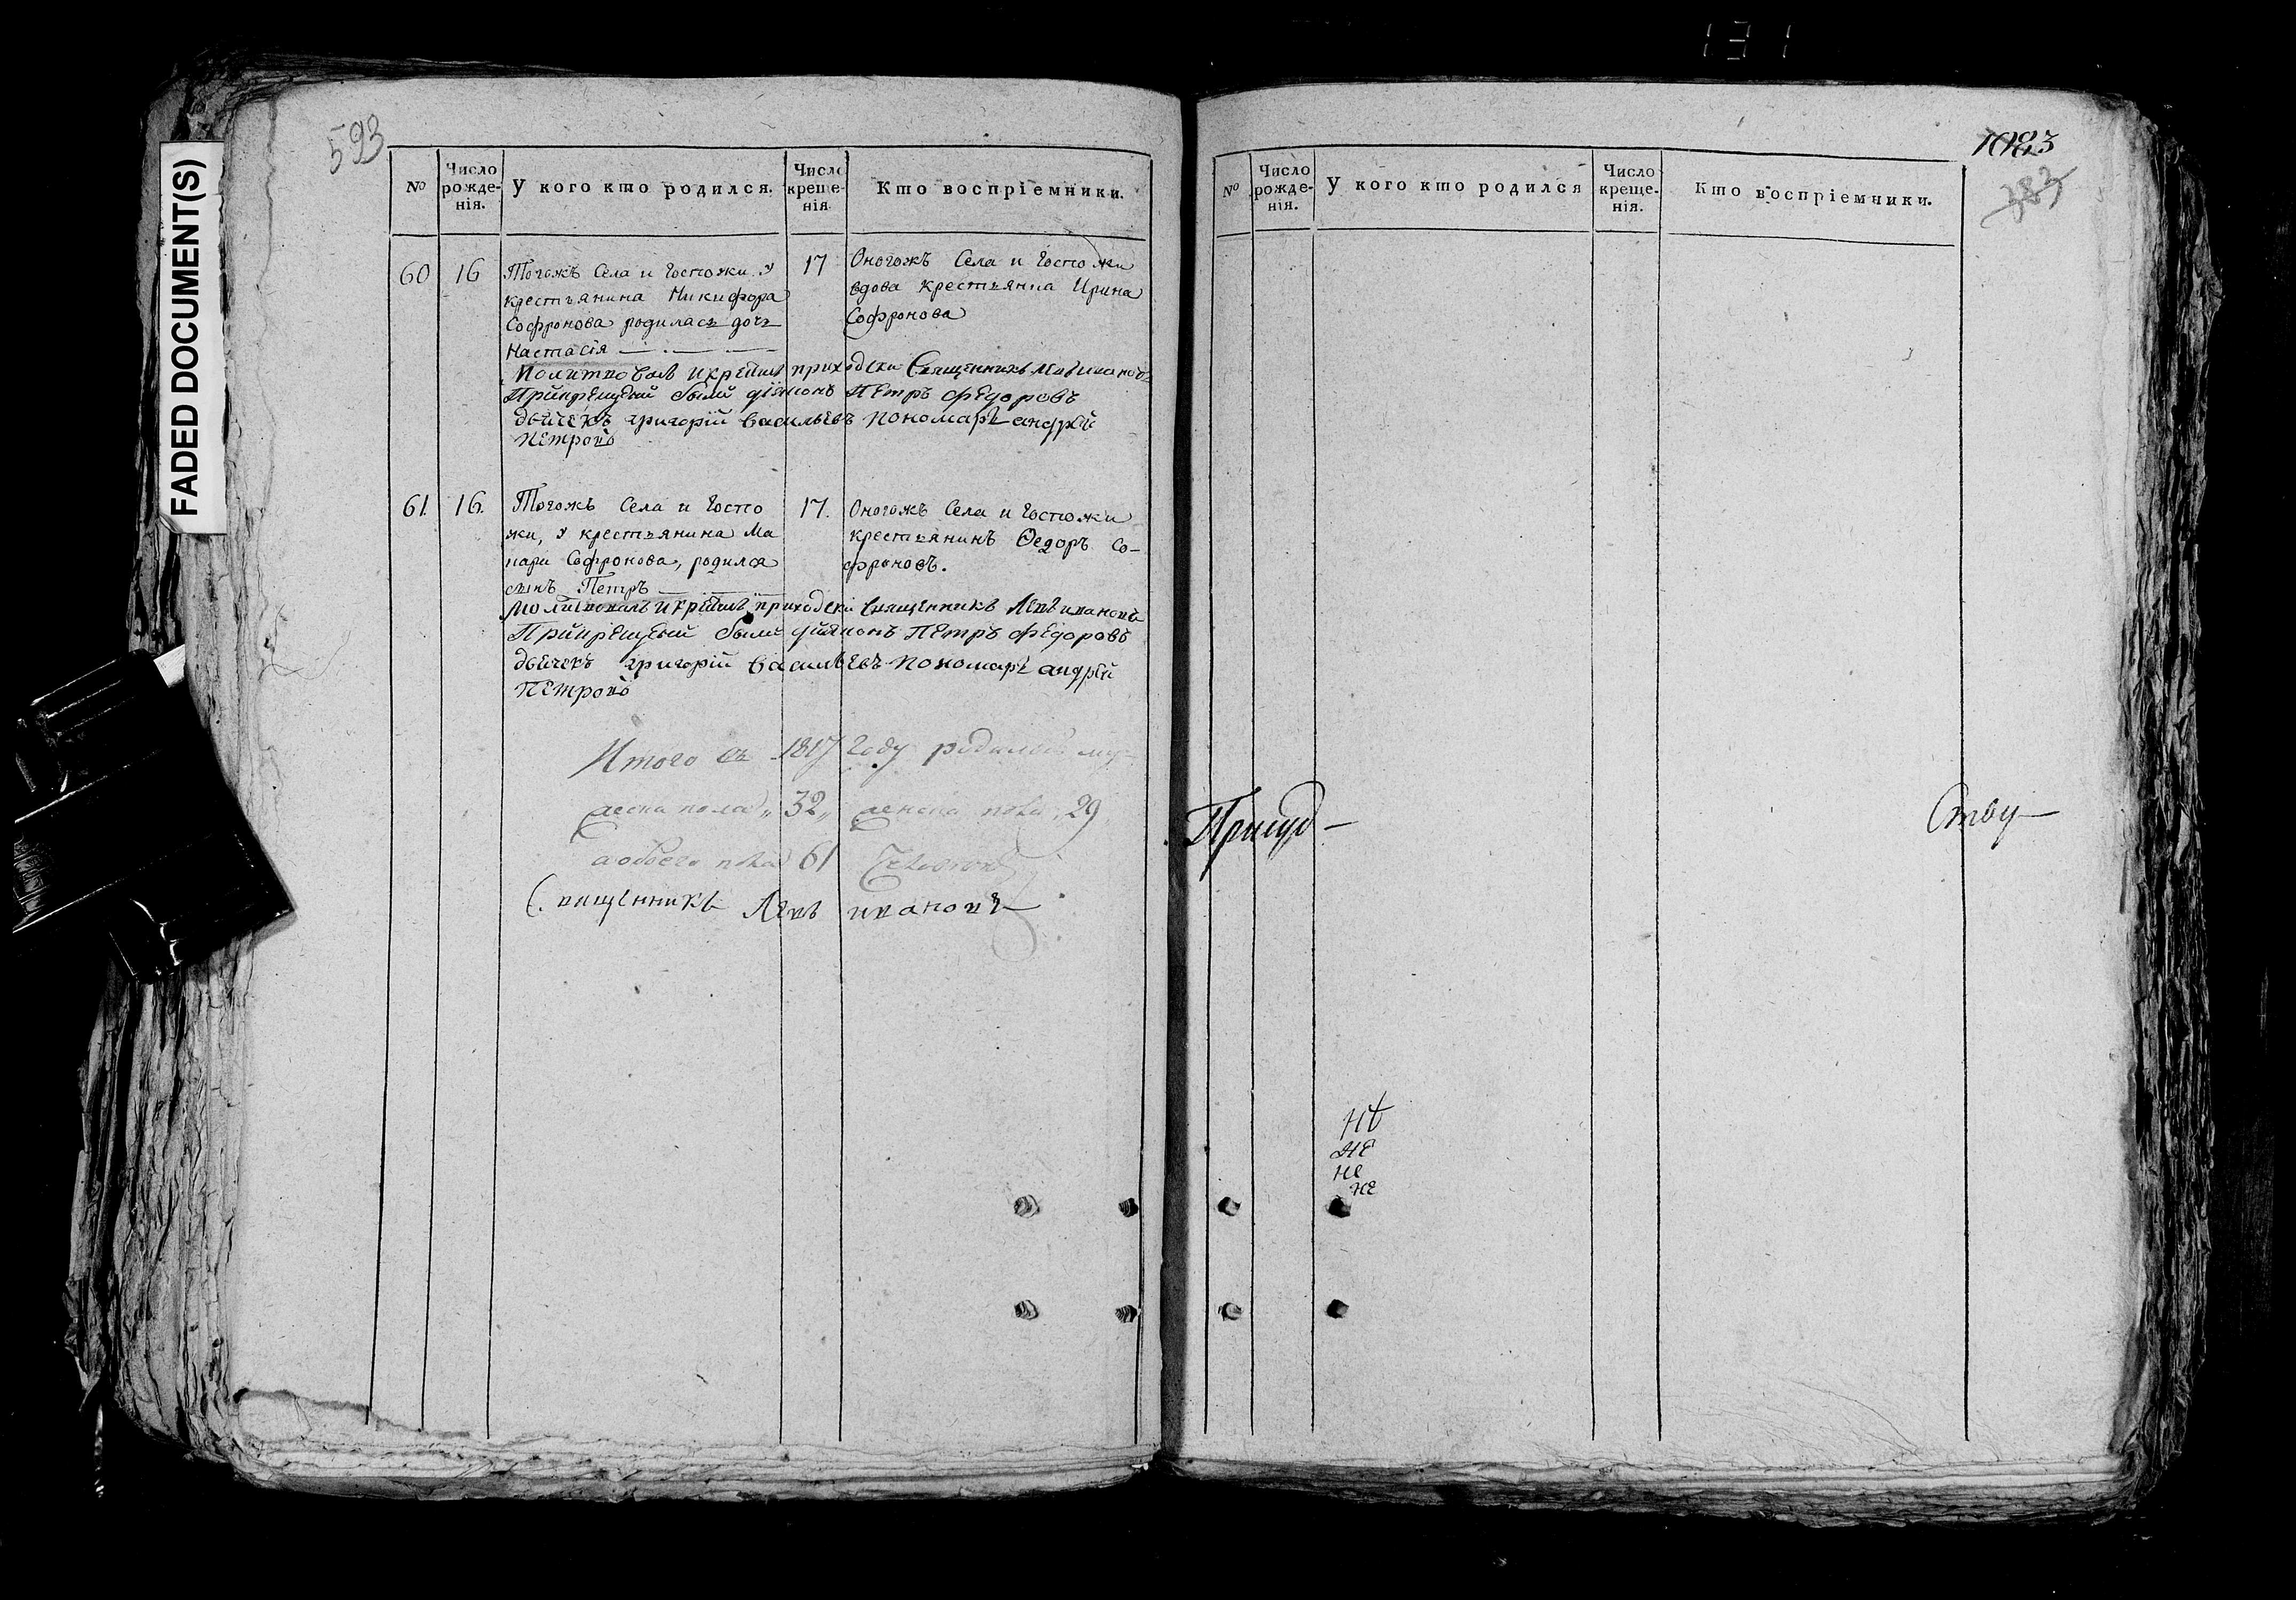 131
FADED DOCUMENT(S)
593
№
Число рожде-нія.
У кого кто родился.
Число креще-нія
Кто воспріемники.
60
16
Тогожъ Села и Госпожи у
крестьянина Никифора
Софронова родилась дочь
Настасія
17
Оногожъ Села и Госпожи
вдова крестьянка Ирина
Софронова
Молитвовалъ и крестилъ приходски Священникъ Левъ Ивановъ
При крещении были диаконъ Петръ Федоровъ
дьячекъ григорій Васильевъ пономарь андрей
Петровъ
61.
16.
Тогожъ Села и Госпо
жи, у крестьянина Ма
кара Софронова, родился
сынъ Петръ
17.
Оногожъ Села и Госпожи
крестьянинъ Ѳедоръ Со-
фроновъ.
молитвовалъ и крестилъ приходски священникъ Левъ ивановъ
При крещении были диаконъ Петръ Федоровъ
дьячекъ григорій Васильевъ пономарь андрей
Петровъ
Итого въ 1817 Году родилось му
жеска пола „ 32 „ женска пола „ 29
а обоего пола 61 Человекъ
Священникъ Левъ ивановъ
1083
383
№
Число рожде-нія.
У кого кто родился
Число креще-нія.
Кто воспріемники.
Присуд-
Ству-
не
не
не